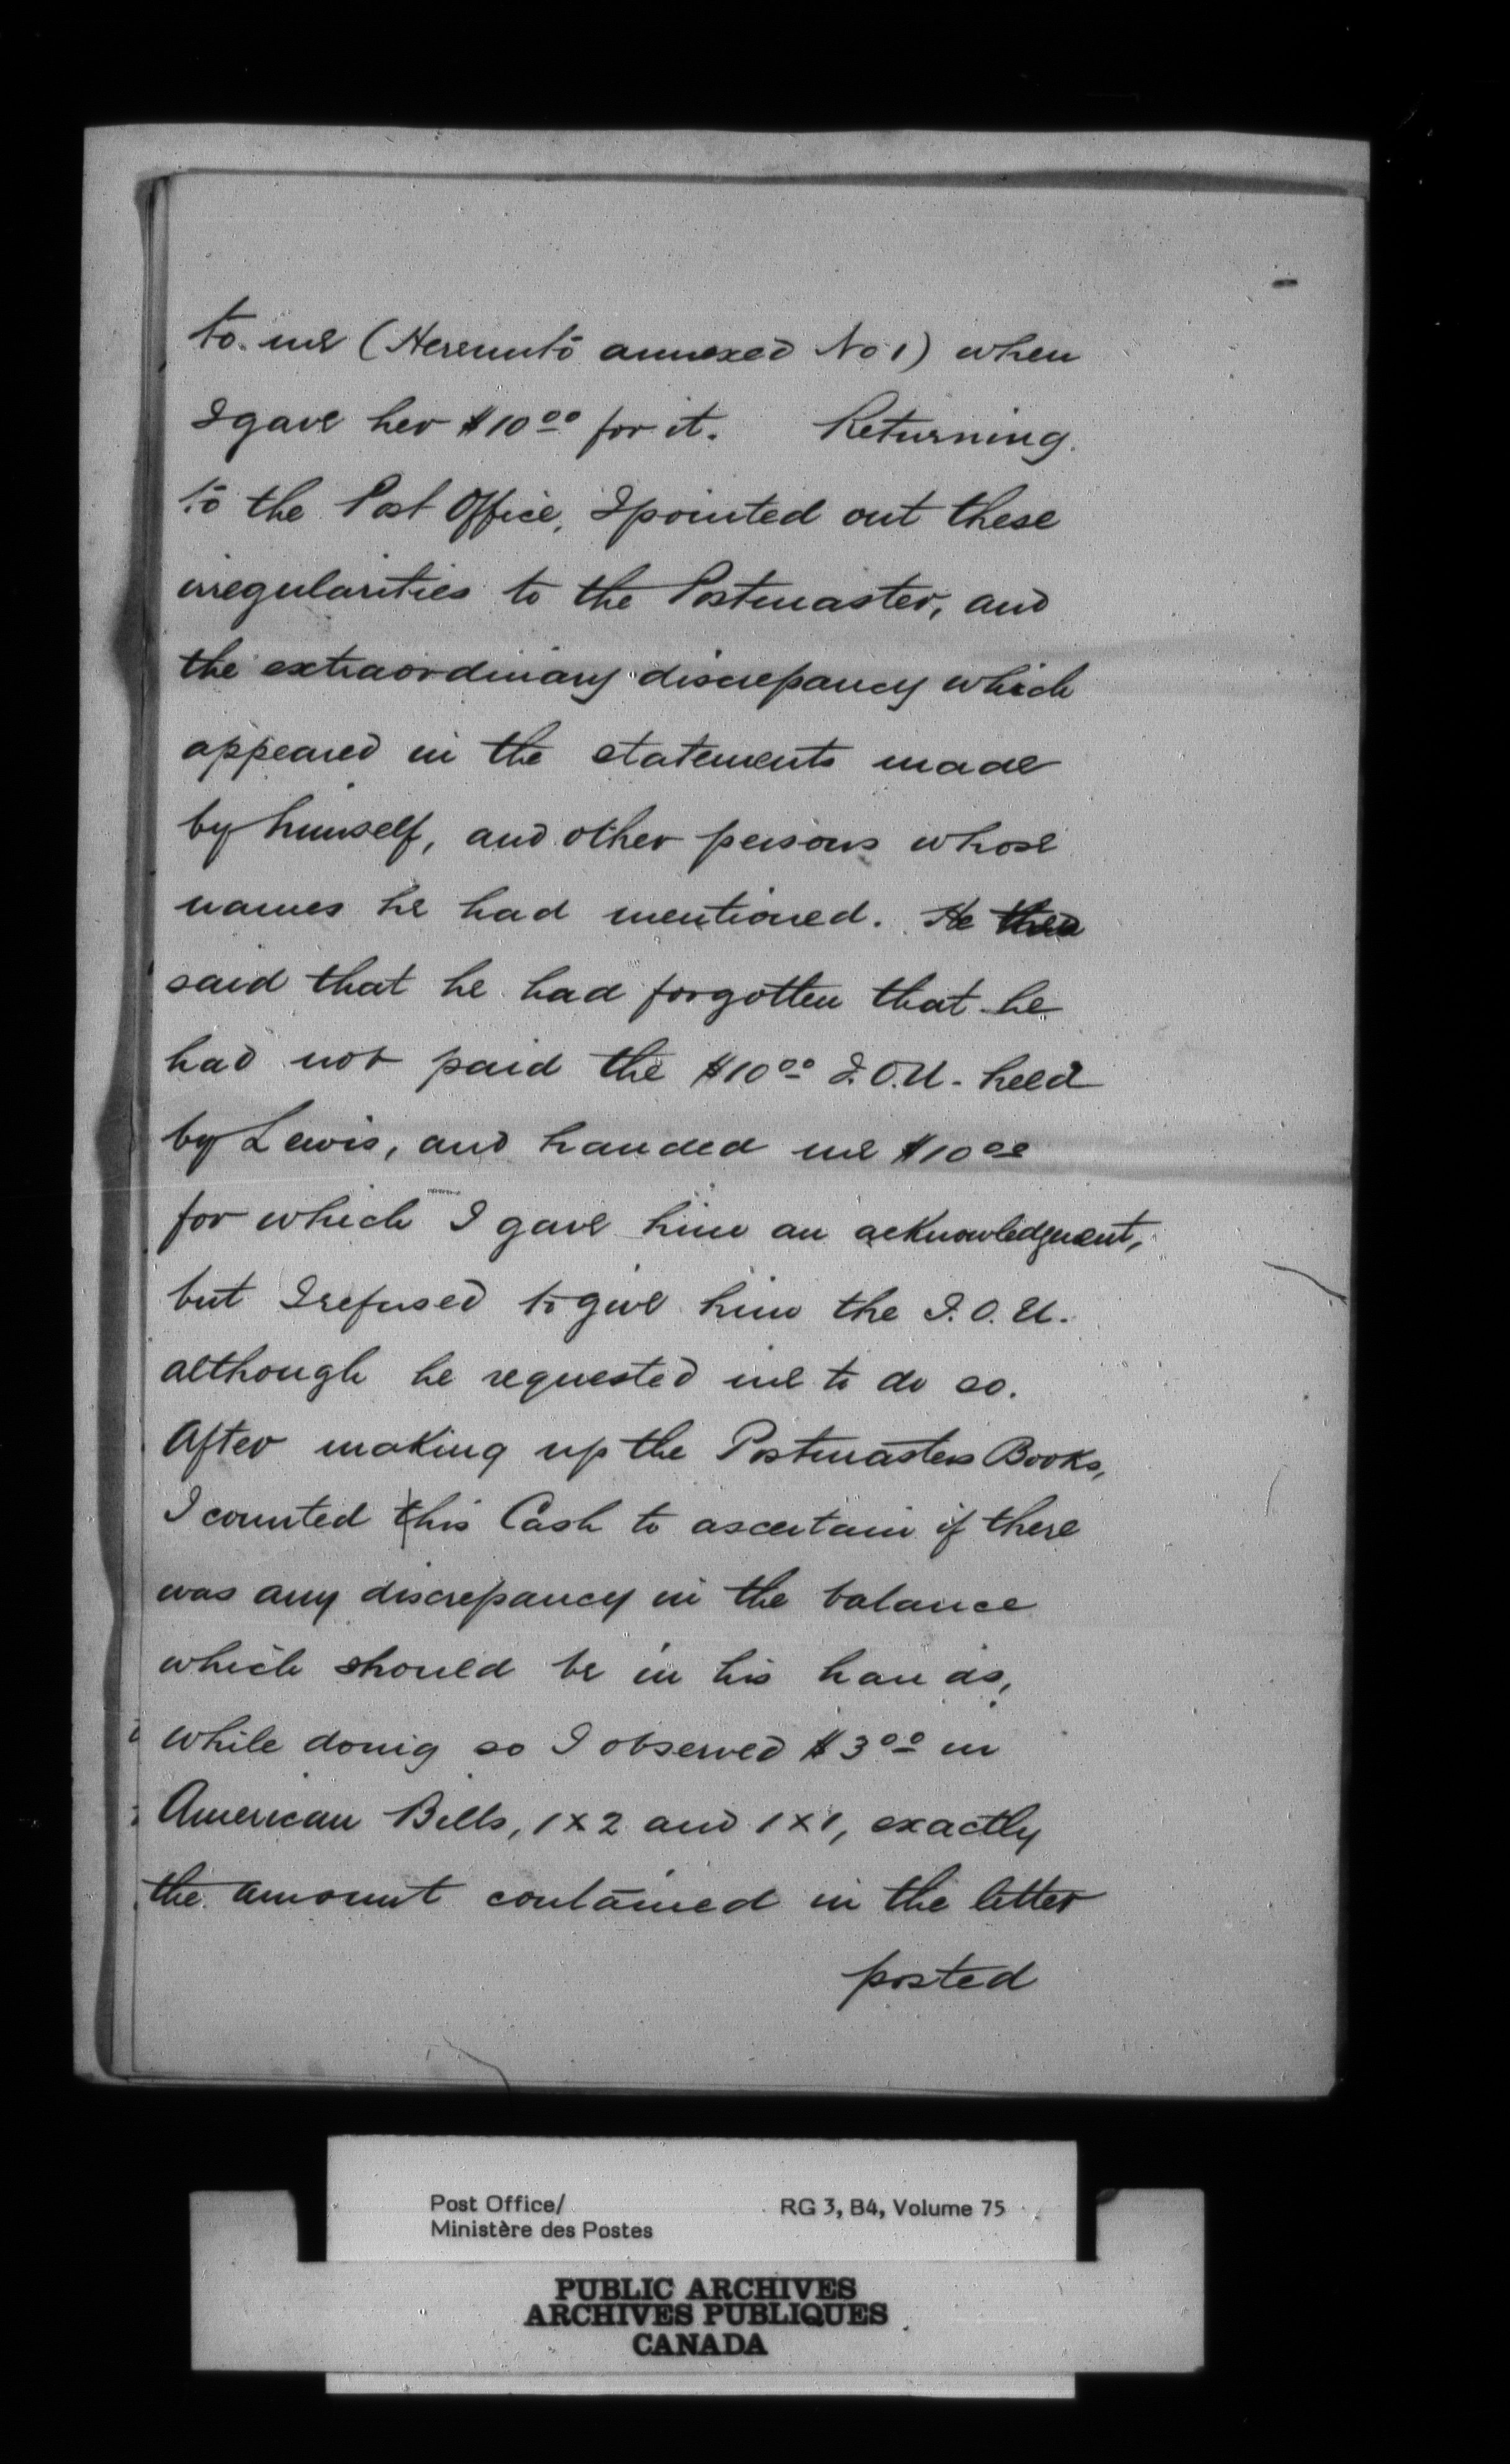 to me (Hereunto annexed No 1) when
I gave her $10.00 for it. Returning
to the Post Office, I pointed out these
irregularities to the Postmaster, and
the extraordinary discrepancy which
appeared in the statements made
by himself, and other persons whose
names he had mentioned. He then
said that he had forgotten that he
had not paid the $10.00 I.O.U. held
by Lewis, and handed me $10.00
for which I gave him an acknowledgment,
but I refused to give him the I.O.U.
although he requested me to do so.
After making up the Postmasters Books,
I counted this Cash to ascertain if there
was any discrepancy in the balance
which should be in his hands,
while doing so I observed $3.00 in
American Bills, 1 x 2 and 1 x 1, exactly
the amount contained in the letter
posted
Post Office/ RG 3, B4, Volume 75
Ministère des Postes
PUBLIC ARCHIVES
ARCHIVES PUBLIQUES
CANADA